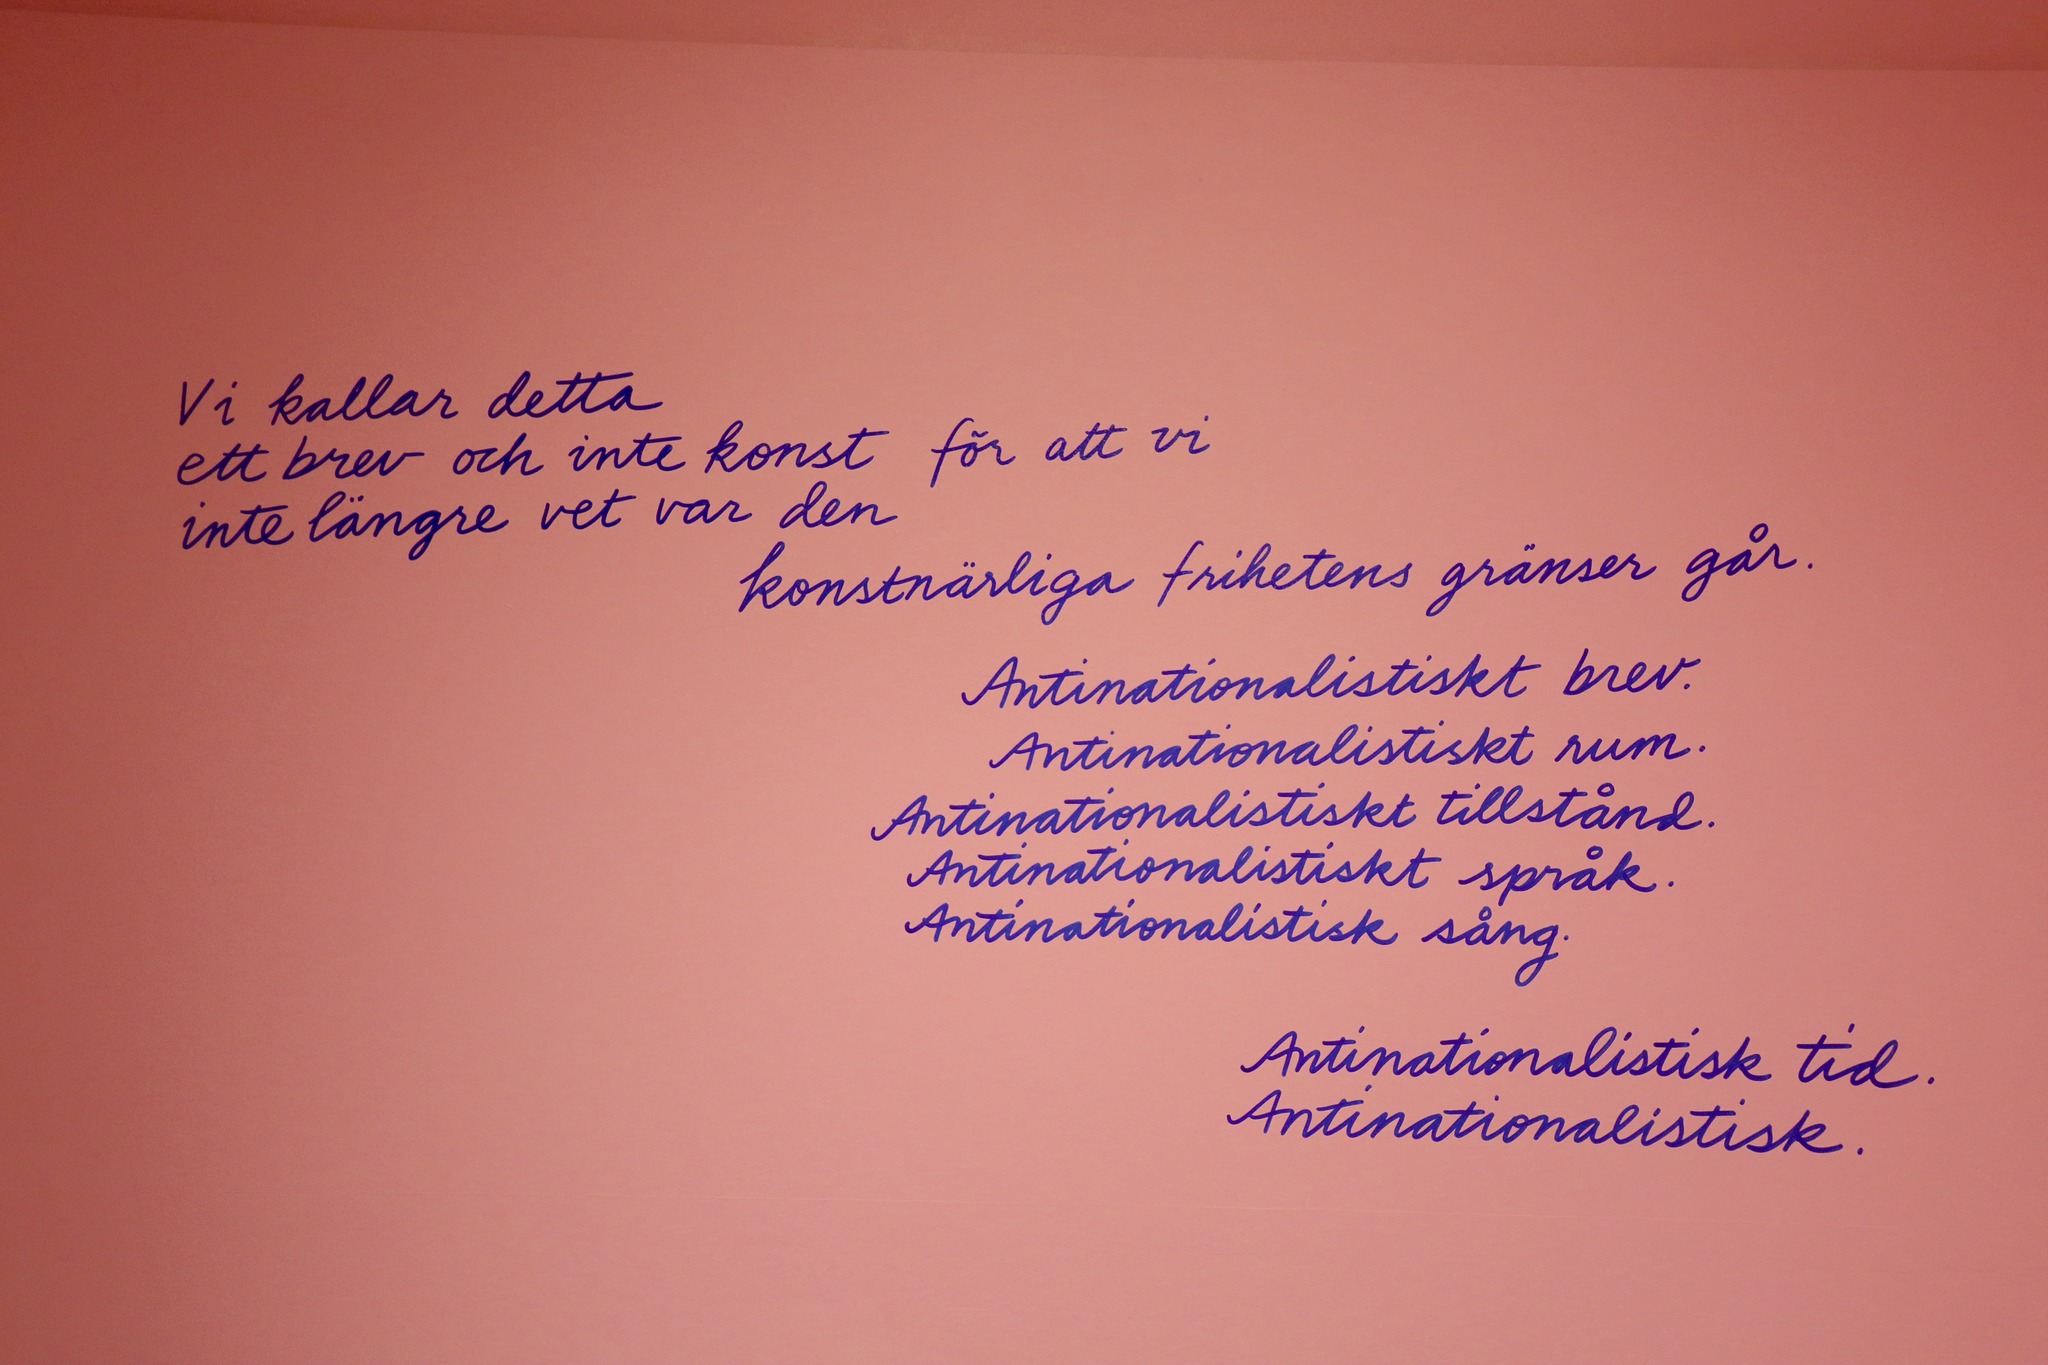 Vi kallar detta
ett brev och inte konst för att vi
inte längre vet var den
konstnärliga frihetens gränser går.
Antinationalistiskt brev.
Antinationalistiskt rum.
Antinationalistiskt tillstånd.
Antinationalistiskt språk.
Antinationalistisk sång.
Antinationalistisk tid.
Antinationalistisk.